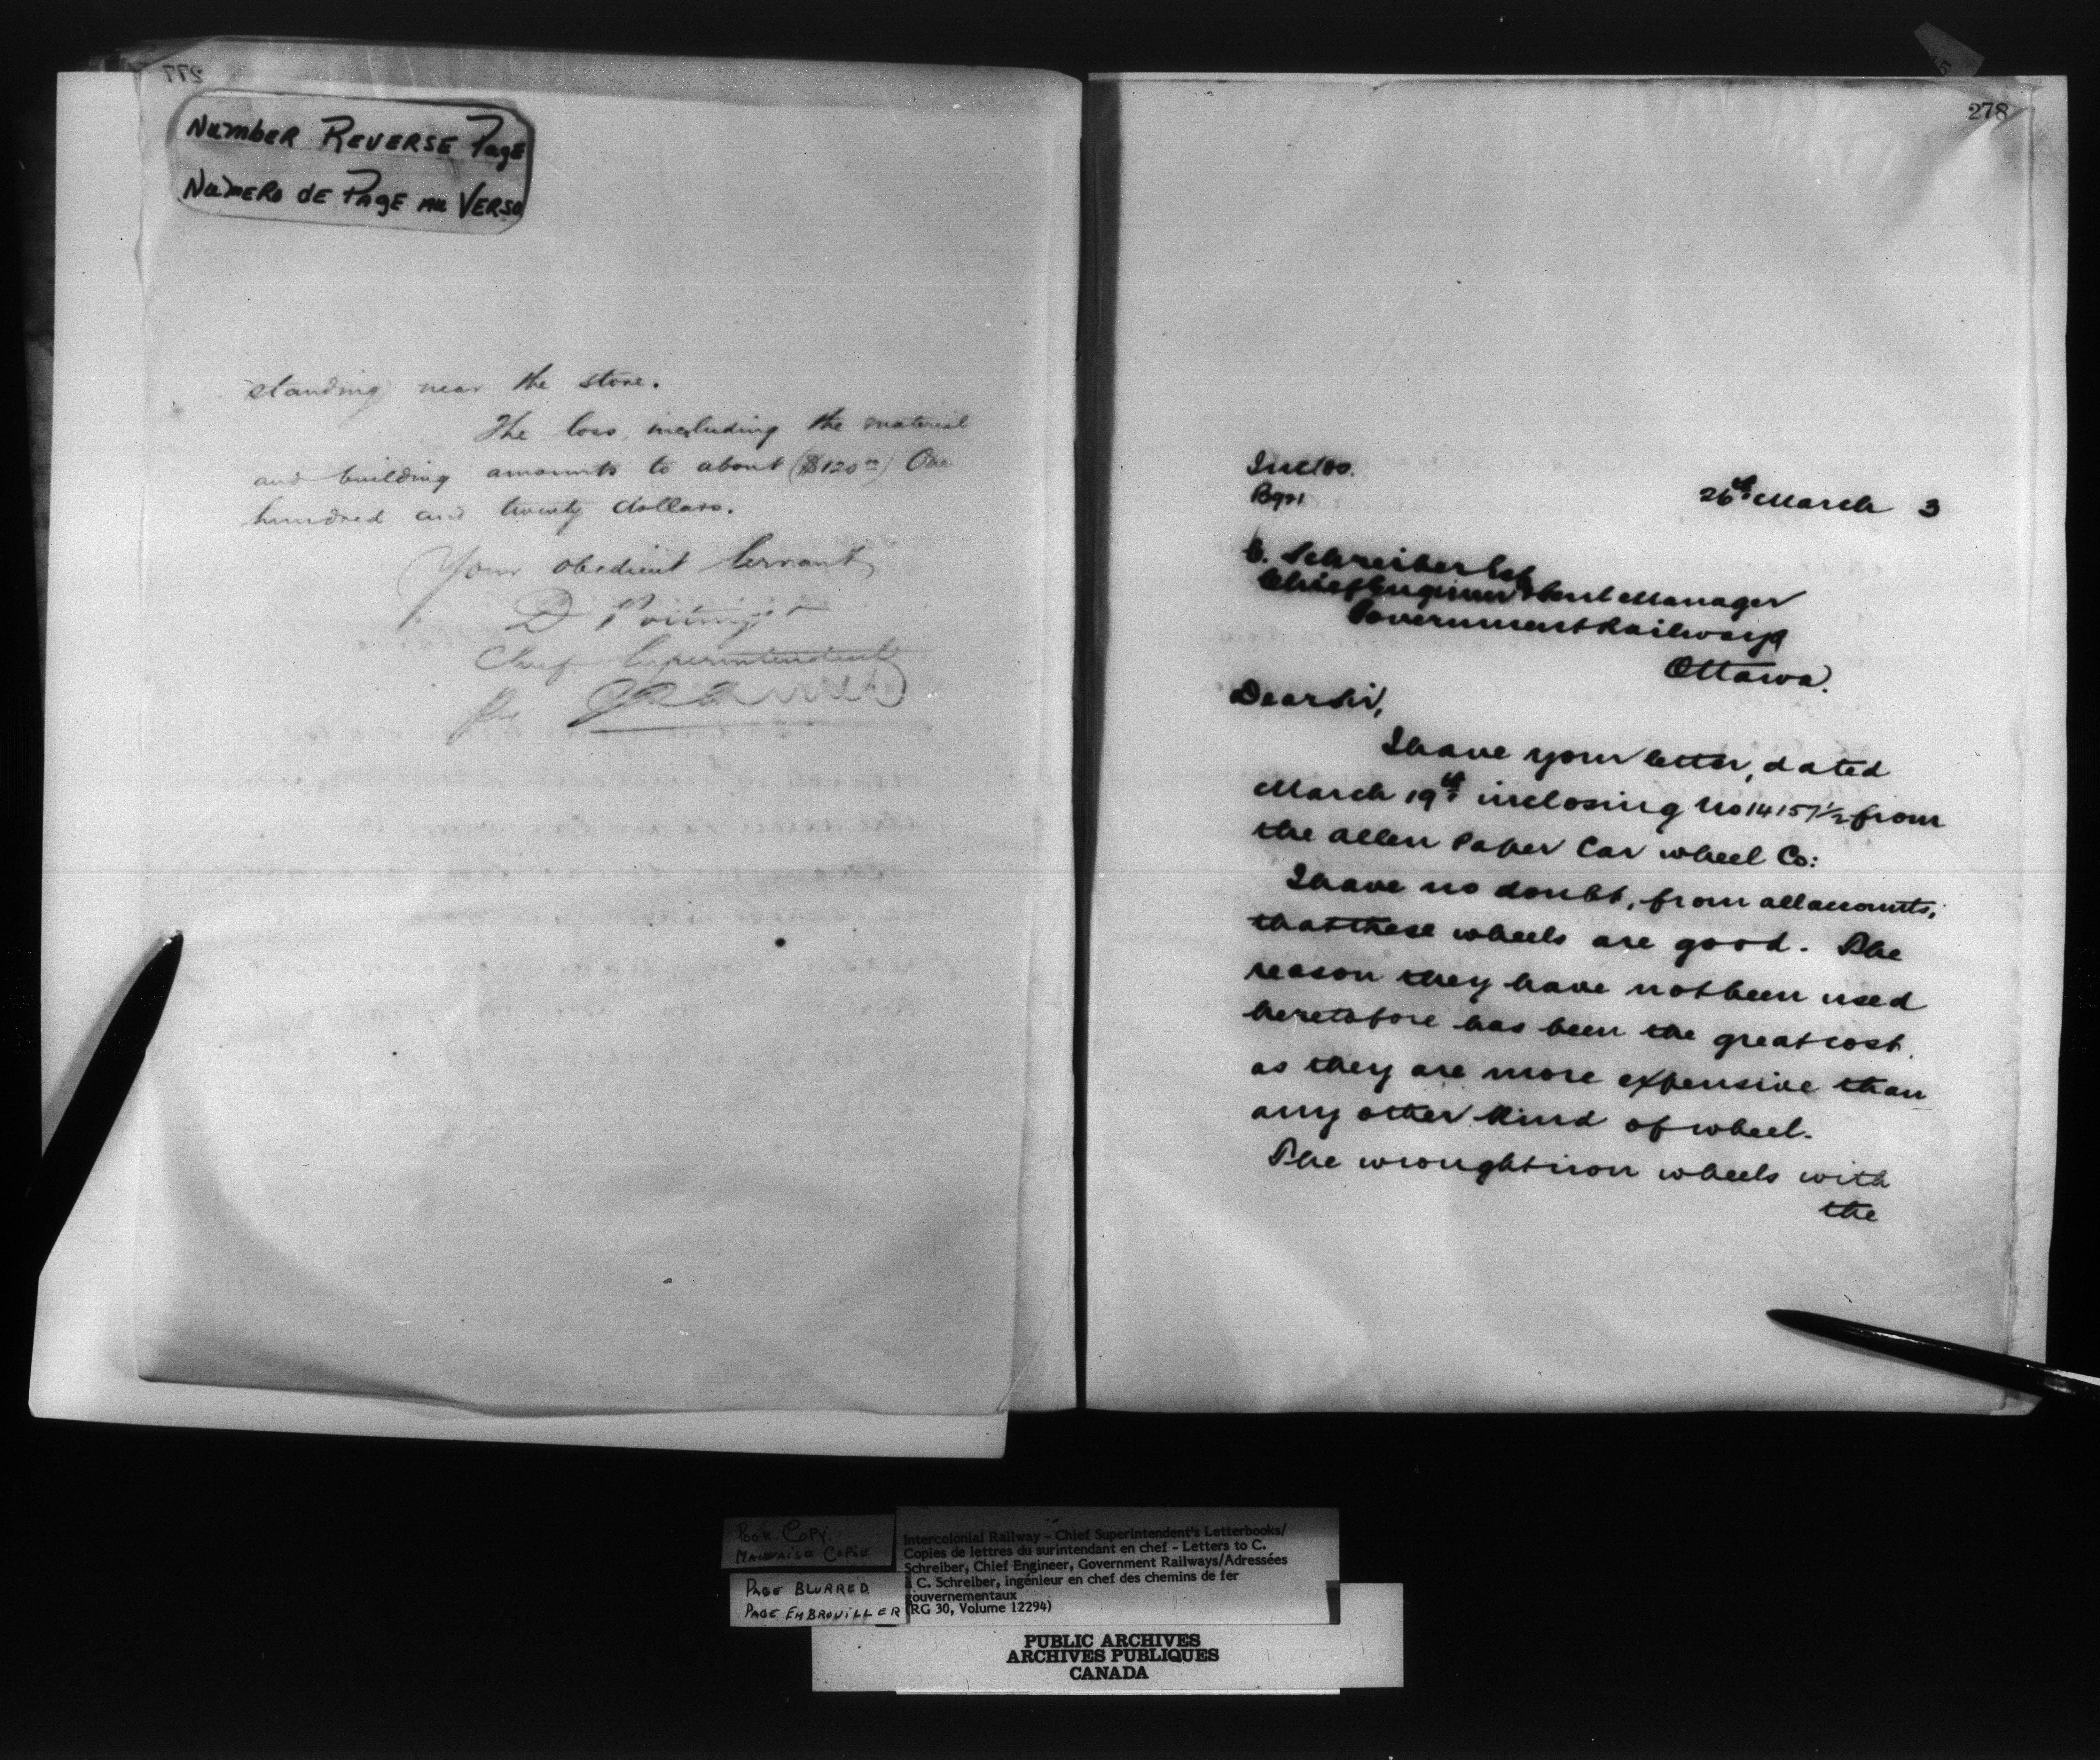 277
NUMBER REVERSE PAGE
NUMERO DE PAGE AU VERSO
standing near the store.
The loss, including the material
and building amounts to about ($120.00) One
hundred and twenty dollars.
Your obedient Servant
D Pottinger
Chief Superintendent
Per
278
Inclos.
26th March 3
C. Schreiber Esq
Chief Engineer & Genl Manager
Government Railways
Ottawa.
Dear Sir,
I have your letter, dated
March 19th inclosing No 14157½ from
the Allen Paper Car wheel Co:
I have no doubt, from all accounts,
that these wheels are good. The
reason they have not been used
heretofore has been the great cost.
as they are more expensive than
any other kind of wheel.
The wrought iron wheels with
the
POOR COPY
MAUVAISE COPIE
PAGE BLURRED
PAGE EMBROUILLER
Intercolonial Railway - Chief Superintendent's Letterbooks/
Copies de lettres du surintendant en chef - Letters to C.
Schreiber, Chief Engineer, Government Railways/Adressées
à C. Schreiber, ingénieur en chef des chemins de fer
gouvernementaux
(RG 30, Volume 12294)
PUBLIC ARCHIVES
ARCHIVES PUBLIQUES
CANADA